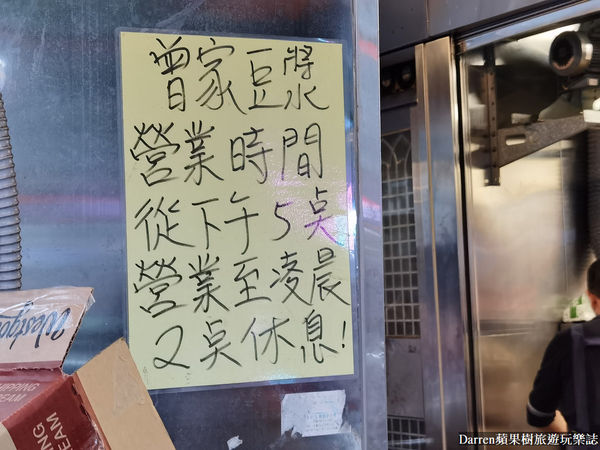 曾家豆漿
營業時間
從下午5点
營業至凌晨
2点休息!
Westgold
WHIPPING
CREAM
Darren蘋果樹旅遊玩樂誌